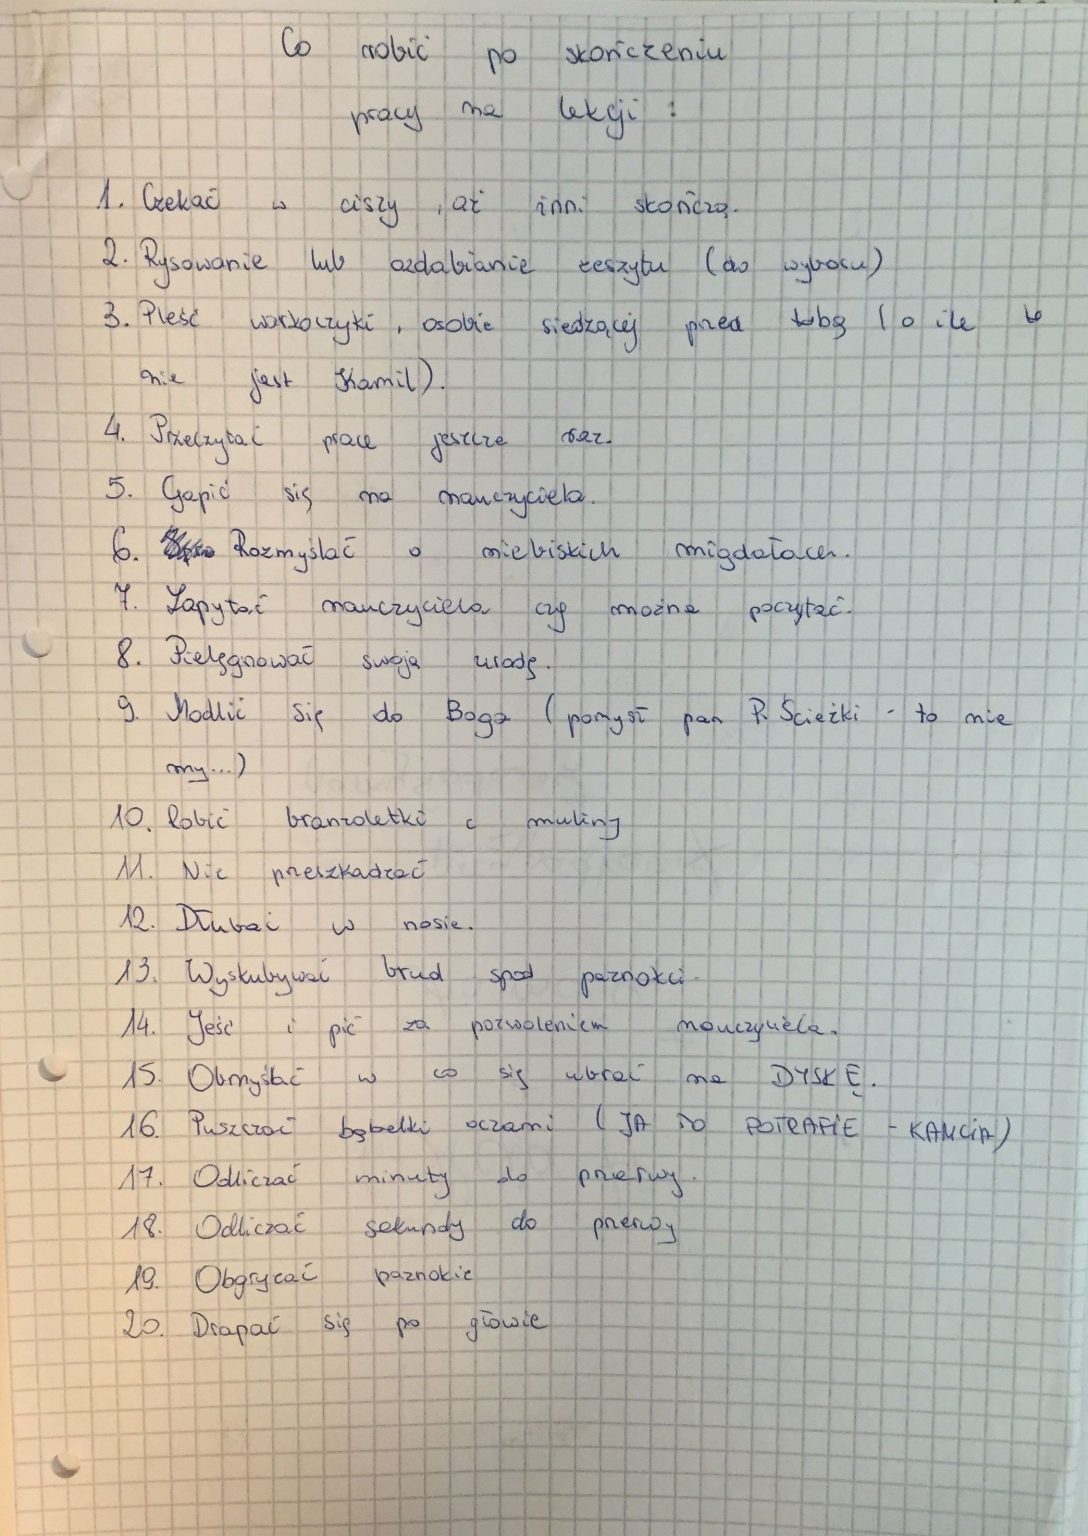 Co robić po skończeniu
pracy na lekcji :
1. Czekać w ciszy , aż inni skończą.
2. Rysowanie lub ozdabianie zeszytu (do wyboru)
3. Pleść warkoczyki , osobie siedzącej przed tobą (o ile to
nie jest Kamil).
4. Przeczytać prace jeszcze raz.
5. Gapić się na nauczyciela.
6. Rozmyślać o niebiskich migdałach.
7. Zapytać nauczyciela czy można poczytać.
8. Pielęgnować swoją urodę.
9. Modlić się do Boga (pomysł pan P. Ścieżki - to nie
my...)
10. Robić branzoletki z muliny
11. Nie przeszkadzać
12. Dłubać w nosie.
13. Wyskubywać brud spod paznokci.
14. Jeść i pić za pozwoleniem nauczyciela.
15. Obmyślać w co się ubrać na DYSKĘ.
16. Puszczać bąbelki oczami (JA TO POTRAFIE - KAMCIA)
17. Odliczać minuty do przerwy.
18. Odliczać sekundy do przerwy
19. Obgryzać paznokie
20. Drapać się po głowie